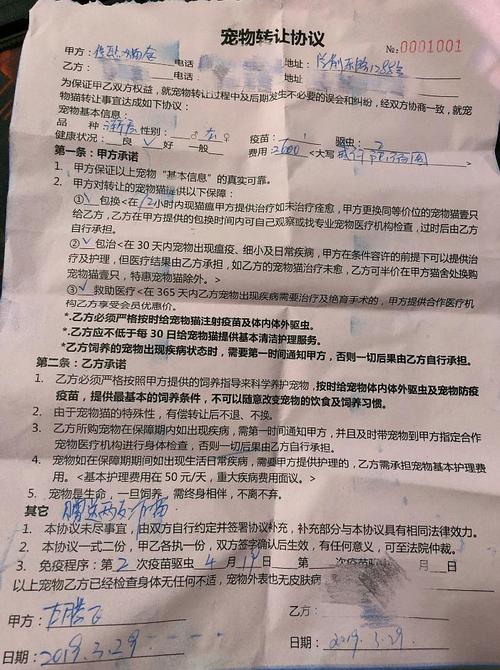 宠物转让协议
№:0001001
甲方: 电话 地址:
乙方: 电话: 地址
为保障甲乙双方权益,就宠物转让过程中及后期发生不必要的误会和纠纷,经双方协商一致,就宠
物猫转让事宜达成如下协议:
宠物基本信息:
品 种 性别: ♂ ♀ 疫苗: 1 驱虫:
健康状况: 良 ✓ 好 一般 费用 2600 <大写 >
第一条:甲方承诺
1. 甲方保证以上宠物“基本信息”的真实可靠。
2. 甲方对转让的宠物猫提供以下保障:
① 包换<在 12 小时内现猫瘟甲方提供治疗如未治疗痊愈,甲方更换同等价位的宠物猫壹只
给乙方,乙方在甲方提供的包换时间内可自己观察或找专业宠物医疗机构检查,过时后由乙方
自行承担。
②✓ 包治<在 30 天内宠物出现瘟疫、细小及日常疾病,甲方在条件容许的前提下可以提供治
疗及护理,但医疗结果由乙方承担,如乙方的宠物猫治疗未愈,乙方可半价在甲方猫舍处换购
宠物猫壹只,特惠宠物猫除外。>
③✓ 救助医疗<在 365 天内乙方宠物出现疾病需要治疗及绝育手术的,甲方提供合作医疗机
构乙方享受会员优惠价。
*.乙方必须严格按时给宠物猫注射疫苗及体内体外驱虫。
*.乙方应不低于每 30 日给宠物猫提供基本清洁护理服务。
*.乙方饲养的宠物出现疾病状态时,需要第一时间通知甲方,否则一切后果由乙方自行承担。
第二条:乙方承诺
1. 乙方必须严格按照甲方提供的饲养指导来科学养护宠物,按时给宠物体内体外驱虫及宠物防疫
疫苗,提供最基本的饲养条件,不可以随意改变宠物的饮食及饲养习惯。
2. 由于宠物猫的特殊性,有偿转让后不退、不换。
3. 乙方所购宠物在保障期内如出现疾病,需第一时间通知甲方,并且及时带宠物到甲方指定合作
宠物医疗机构进行身体检查,否则一切后果由乙方自行承担。
4. 宠物如在保障期期间如出现生活日常疾病,需要甲方提供护理的,乙方需承担宠物基本护理费
用。<基本护理费用在 50 元/天,重大疾病费用面议。>
5. 宠物是生命,一旦饲养,需终身相伴,不离不弃。
其它
1. 本协议未尽事宜,由双方自行约定并签署协议补充,补充部分与本协议具有相同法律效力。
2. 本协议一式二份,甲乙各执一份,双方签字确认后生效,有任何意义,可至法院仲裁。
3. 免疫程序:第 2 次疫苗驱虫 4 月 19 日 第 次疫苗驱虫 月 日
以上宠物乙方已经检查身体无任何不适,宠物外表也无皮肤病
甲方: 乙方:
2019.3.29 日期: 2019.3.29.
日期: